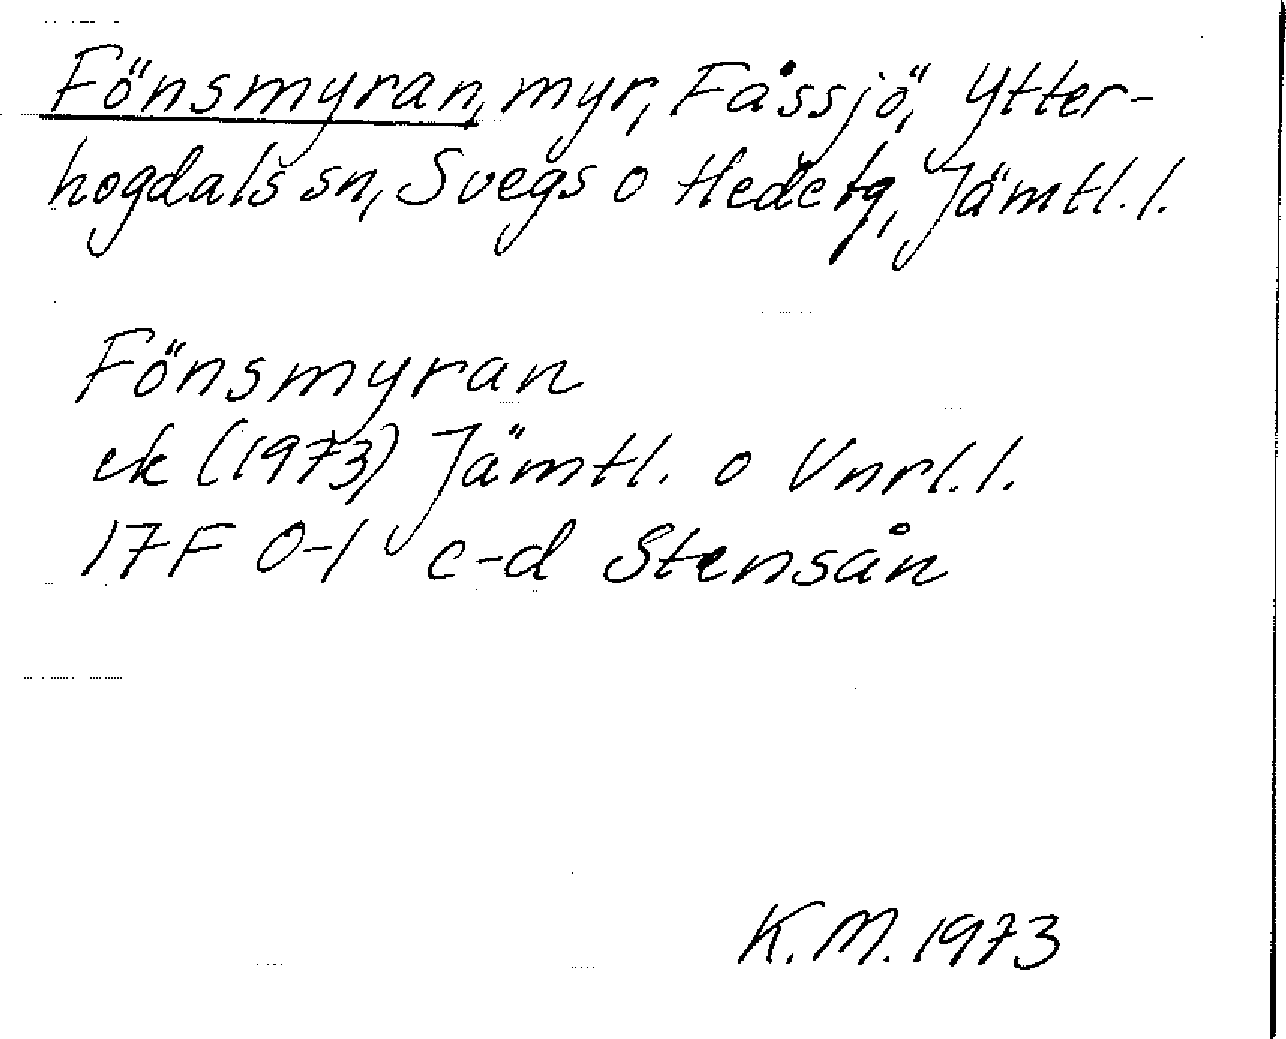 Fönsmyran, myr, Fåssjö, Ytter-
hogdals sn, Svegs o Hede tg, Jämtl. l.
Fönsmyran
ek (1973) Jämtl. o Vnrl. l.
17F 0-1 c-d Stensån
K. M. 1973